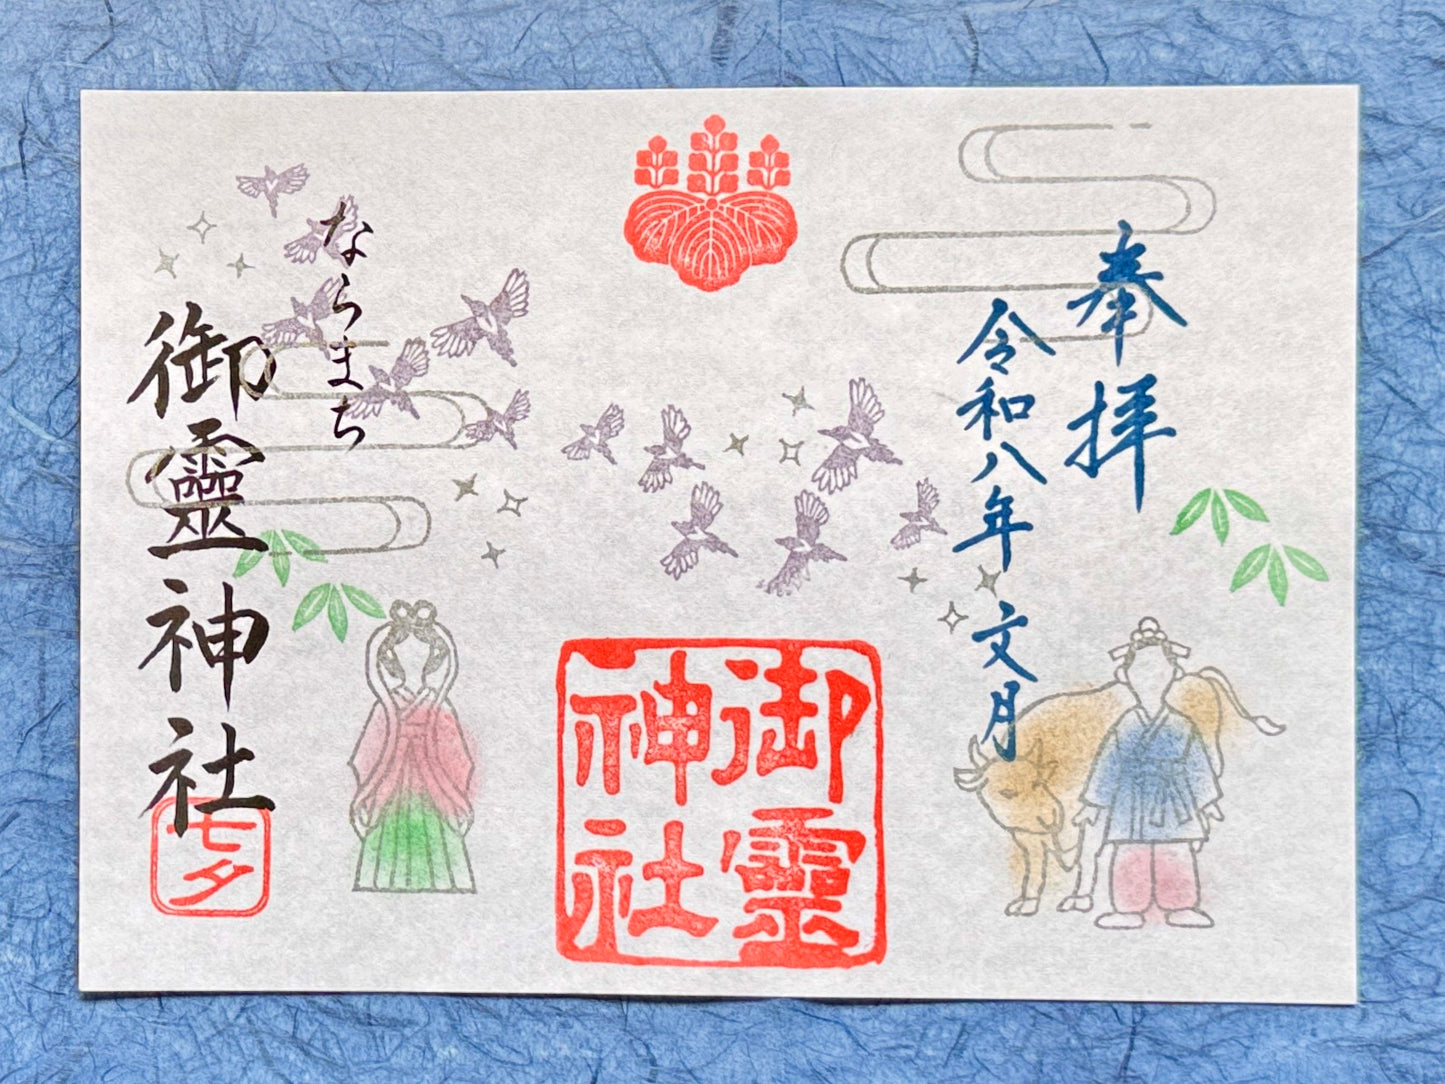 奉拝
令和八年文月
御靈
神社
ならまち
御靈神社
七夕